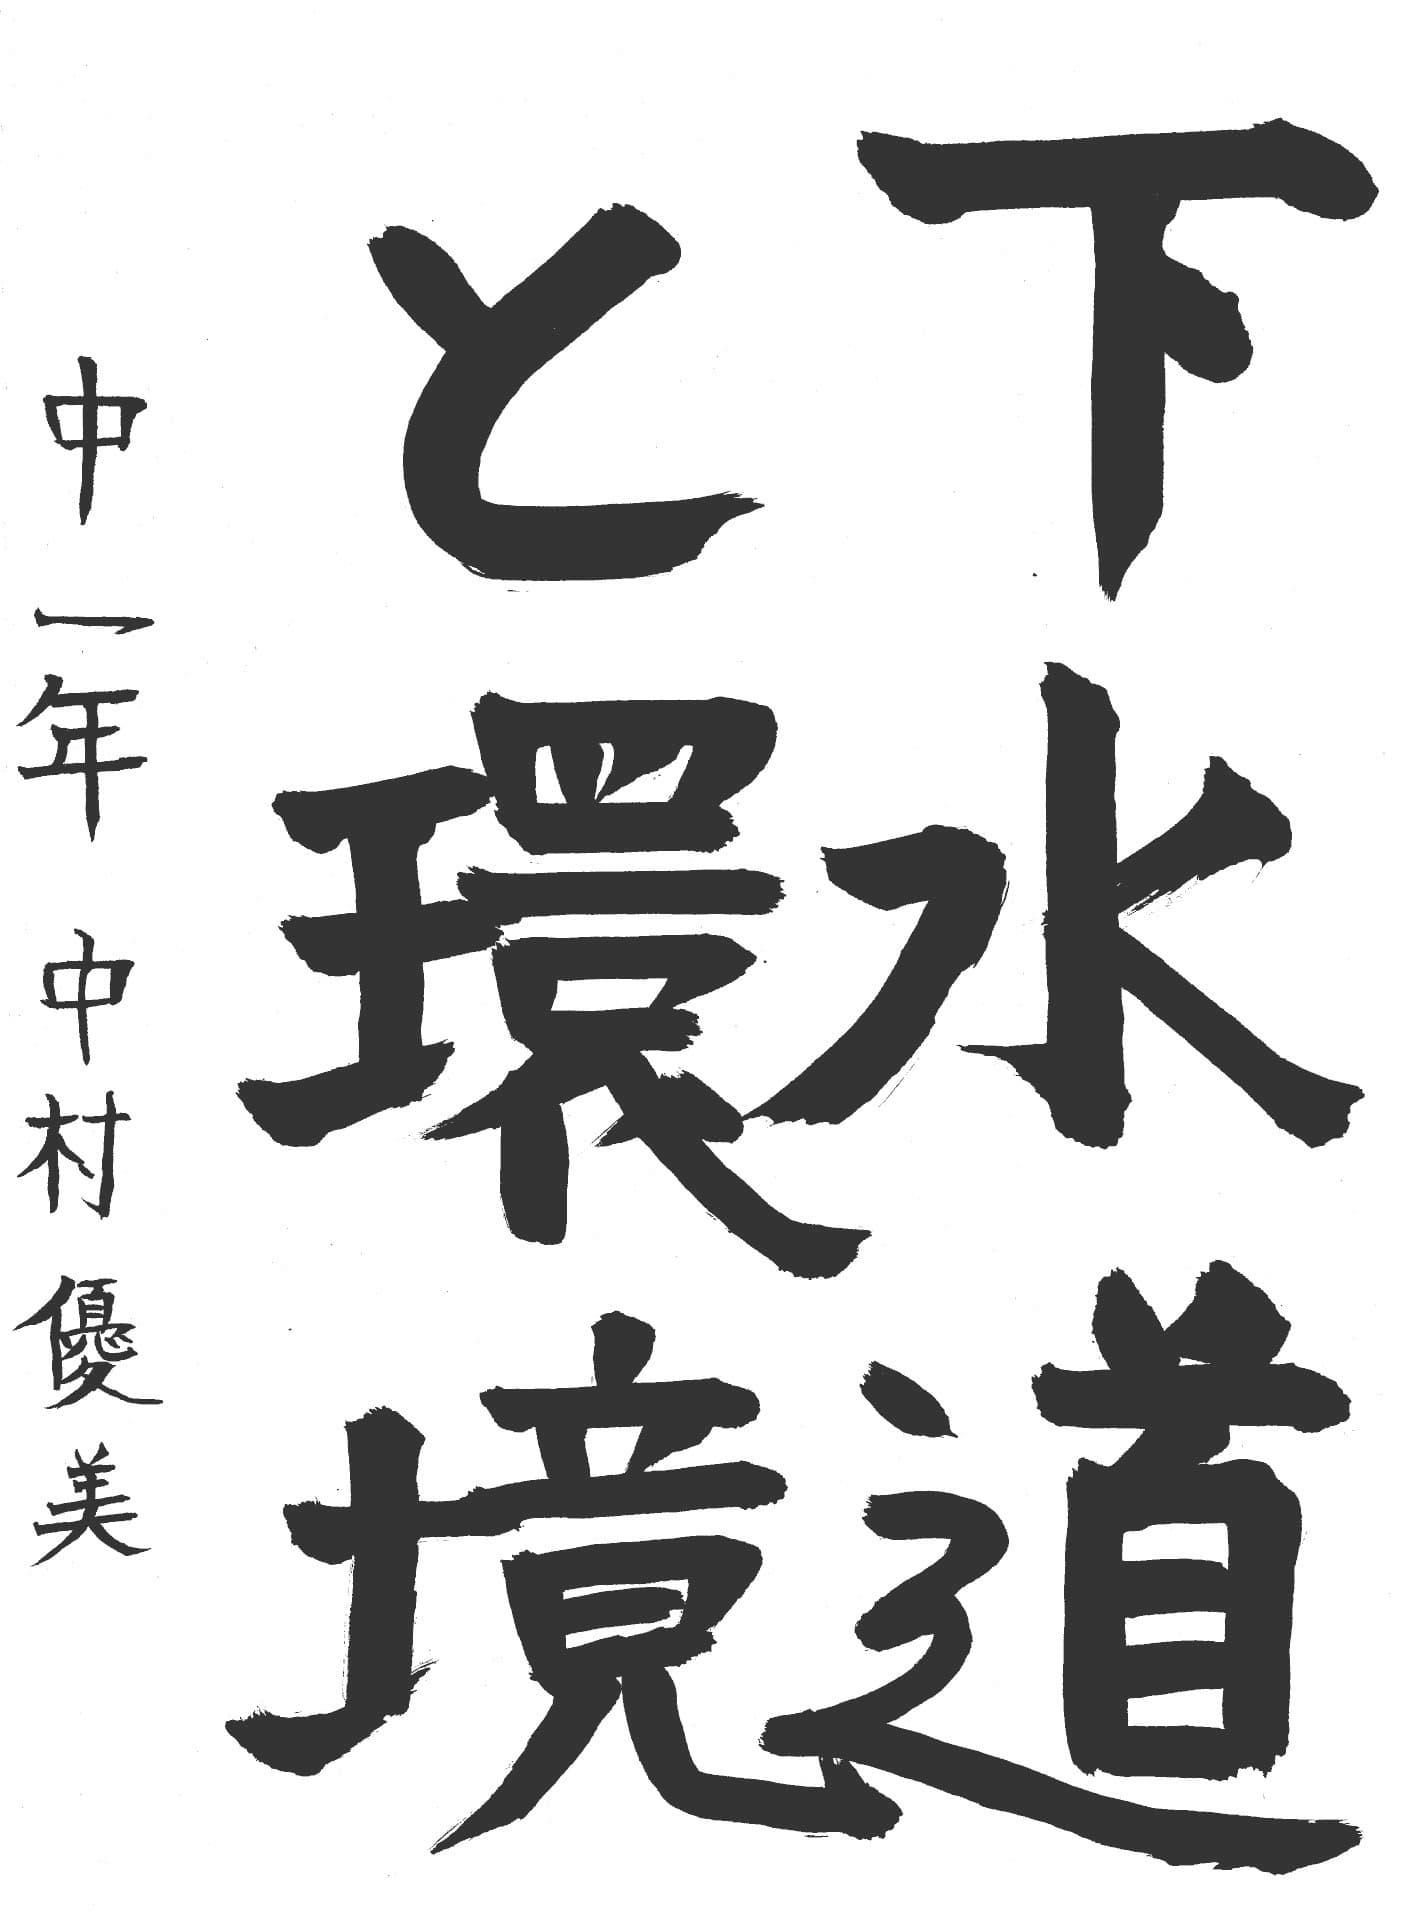 下水道
と環境
中一年 中村優美